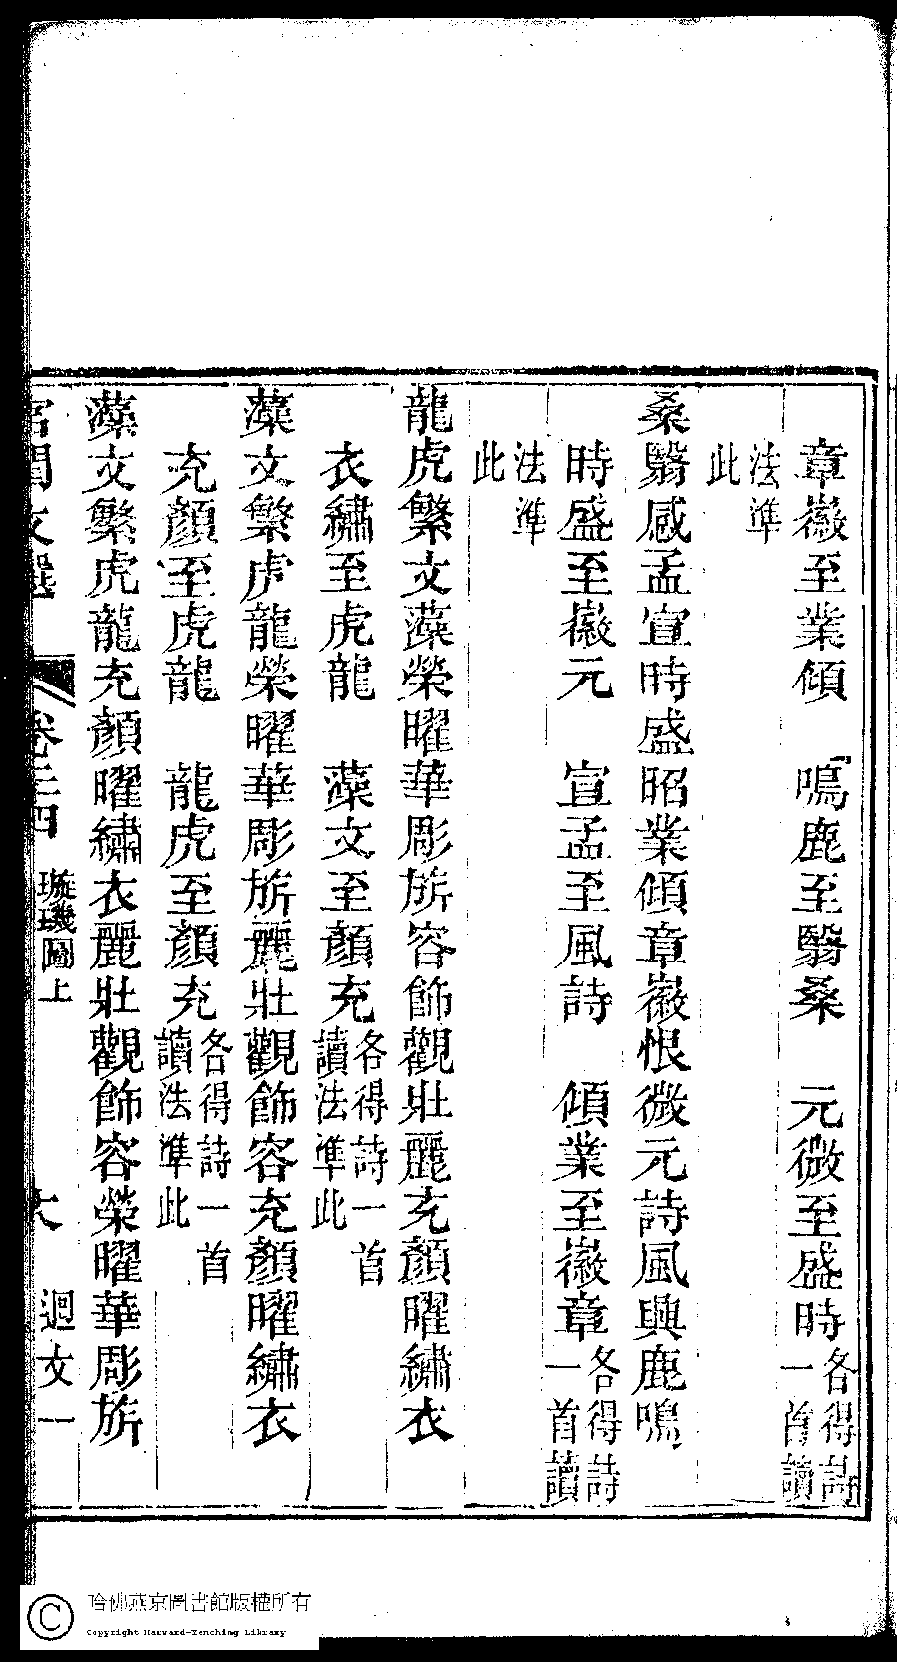 章徽至業傾　鳴鹿至翳桑　元微至盛時各得詩一首讀
法準此
桑翳感孟宣時盛昭業傾章徽恨微元詩風興鹿鳴
時盛至徽元　宣孟至風詩　傾業至徽章各得詩一首讀
法準此
龍虎繁文藻榮曜華彫旂容飾觀壯麗充顏曜繡衣
衣繡至虎龍　藻文至顏充各得詩一首讀法準此
藻文繁虎龍榮曜華彫旂麗壯觀飾容充顏曜繡衣
充顏至虎龍　龍虎至顏充各得詩一首讀法準此
藻文繁虎龍充顏曜繡衣麗壯觀飾容榮曜華彫旂
宮閨文選　卷二四　璇璣圖上　大　迴文一
哈佛燕京圖書館版權所有
Copyright Harvard-Yenching Library